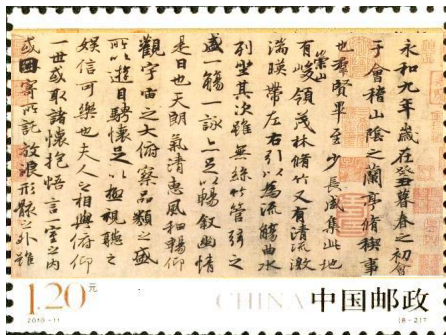 永和九年歲在癸丑暮春之初會
于會稽山陰之蘭亭脩禊事
也羣賢畢至少長咸集此地
有崇山峻領茂林脩竹又有清流激
湍暎帶左右引以為流觴曲水
列坐其次雖無絲竹管弦之
盛一觴一詠亦足以暢敘幽情
是日也天朗氣清惠風和暢仰
觀宇宙之大俯察品類之盛
所以遊目騁懷足以極視聽之
娛信可樂也夫人之相與俯仰
一世或取諸懷抱悟言一室之內
或因寄所託放浪形骸之外雖
1.20元
CHINA 中国邮政
2010-11
(6-2)T